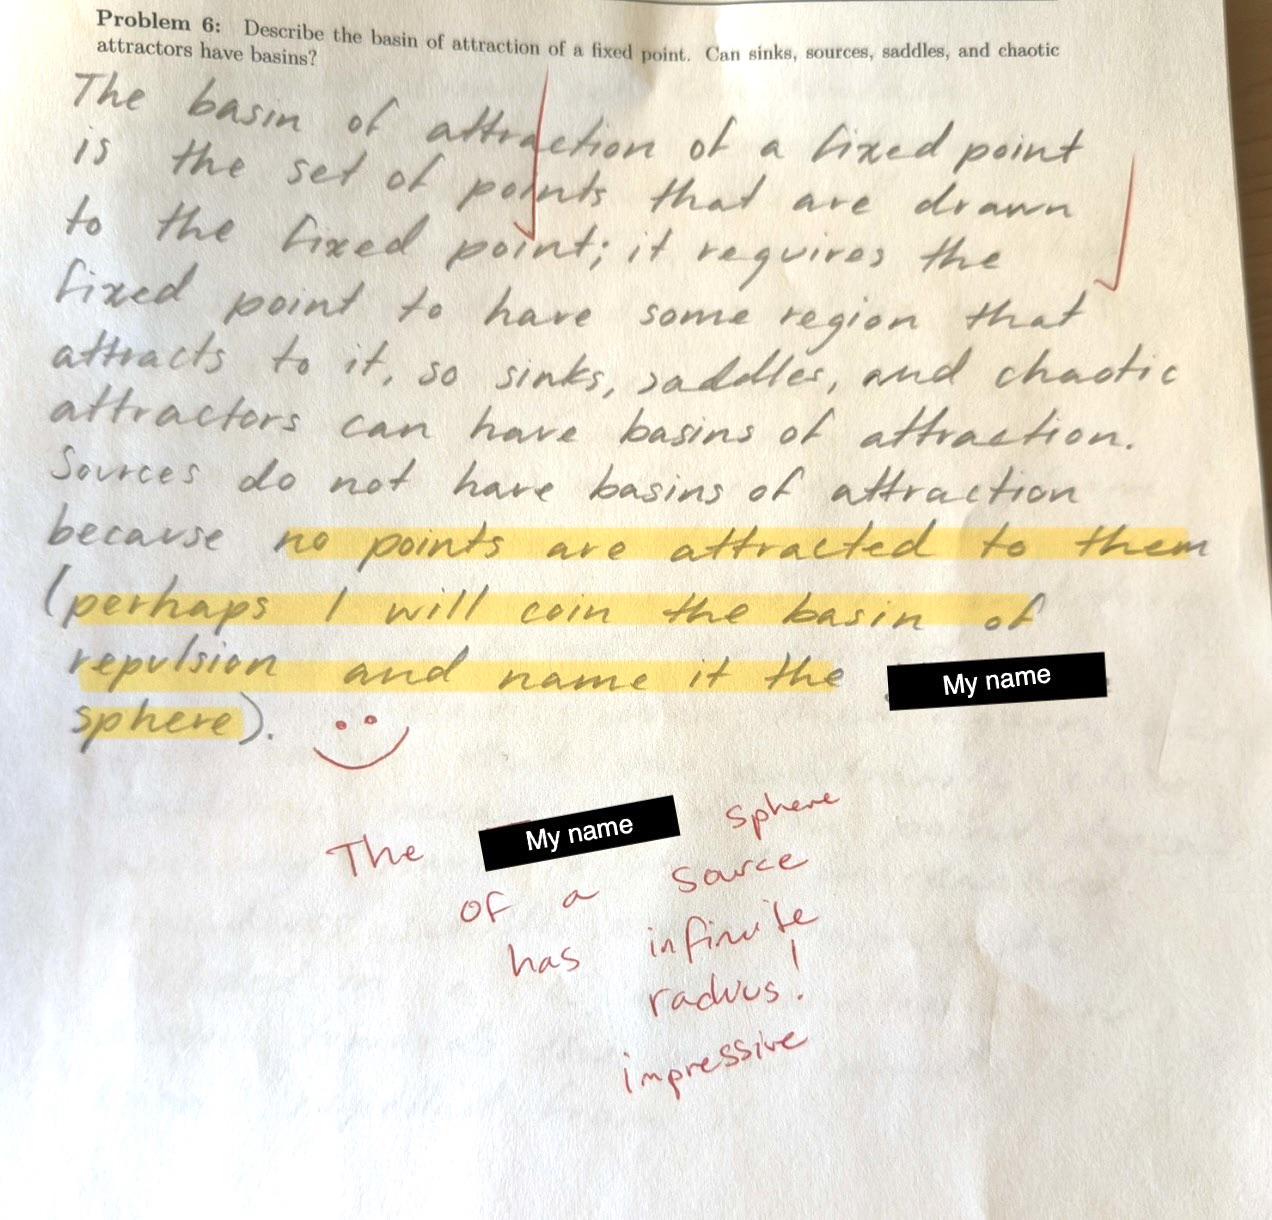 Problem 6: Describe the basin of attraction of a fixed point. Can sinks, sources, saddles, and chaotic
attractors have basins?
The basin of attraction of a fixed point
is the set of points that are drawn
to the fixed point; it requires the
fixed point to have some region that
attracts to it, so sinks, saddles, and chaotic
attractors can have basins of attraction.
Sources do not have basins of attraction
because no points are attracted to them
(perhaps I will coin the basin of
repulsion and name it the My name
sphere).
The My name sphere
of a source
has infinite
radius!
impressive